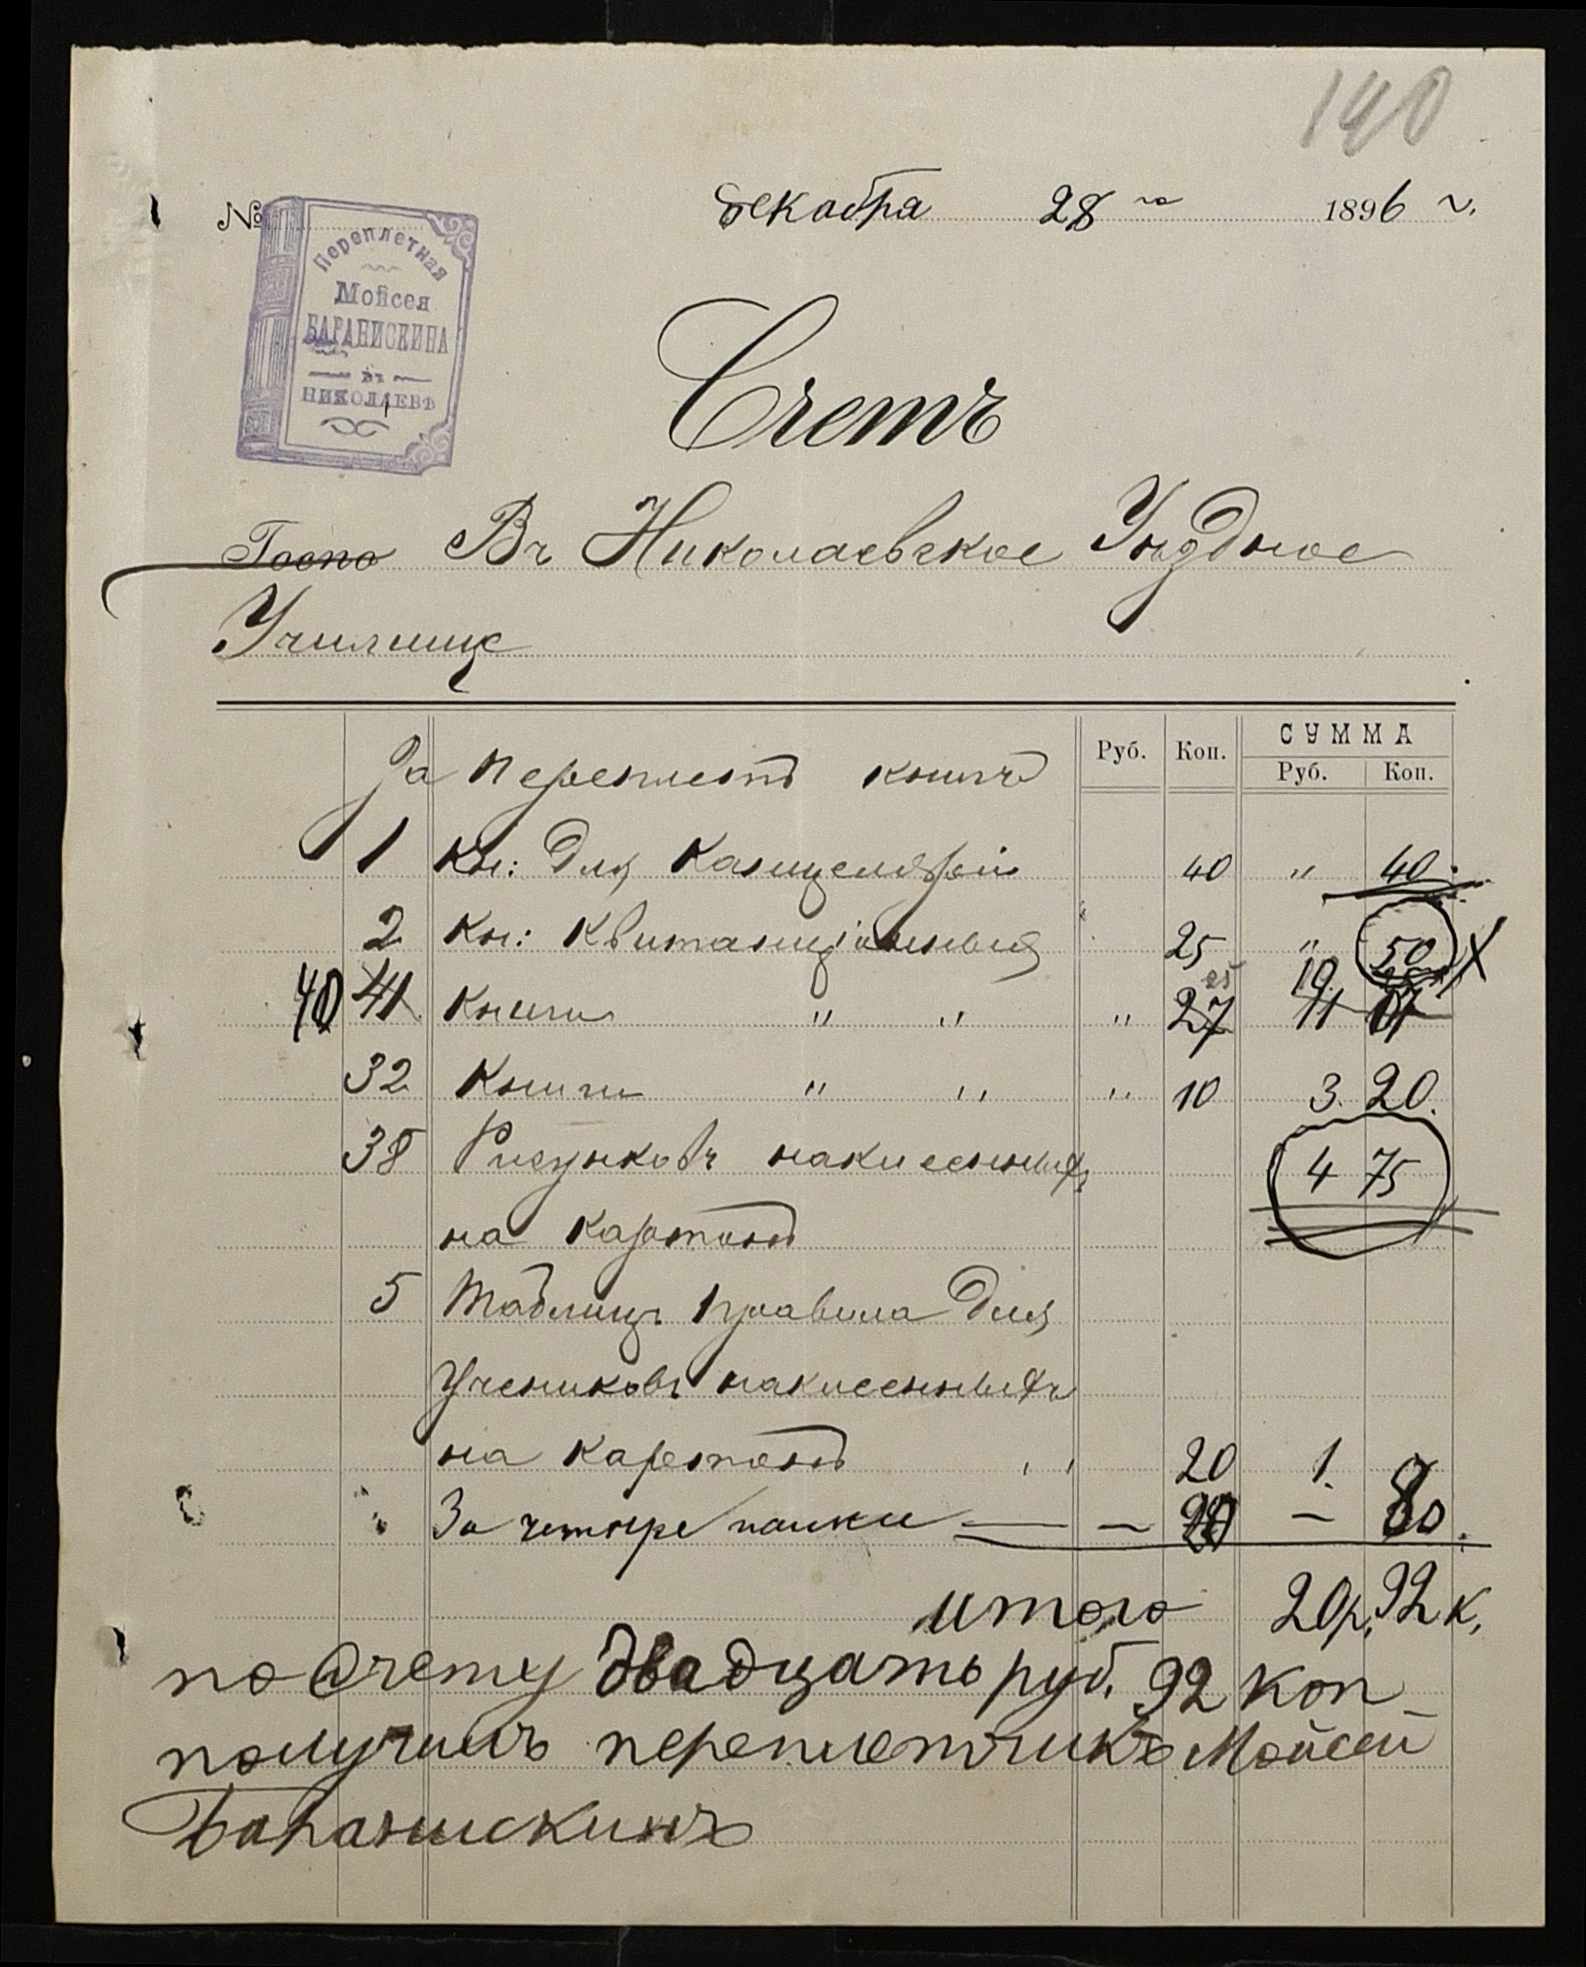 140
№
декабря 28 го 1896 г.
Переплетная
Мойсея
БАРАНИСКИНА
въ
НИКОЛАЕВѢ
Счетъ
Госпо Въ Николаевское Уѣздное
Училище
За переплетъ книгъ Руб. Коп. СУММА
Руб. Коп.
1 Кн: для Канцелярій 40 " 40
2 Кн: Квитанціонныя 25 " 50 X
40 41 Книги " " " 27 25 11 07 10
32 Книги " " " 10 3. 20.
38 Рисунковъ наклеенныхъ 4 75
на картонъ
5 Таблицъ правила для
Учениковъ наклеенныхъ
на картонъ " 20 1.
За четыре папки — — 20 — 80.
итого 20 р. 92 к.
по Счету двадцать руб. 92 коп
получилъ переплетчикъ Мойсей
Баранискинъ